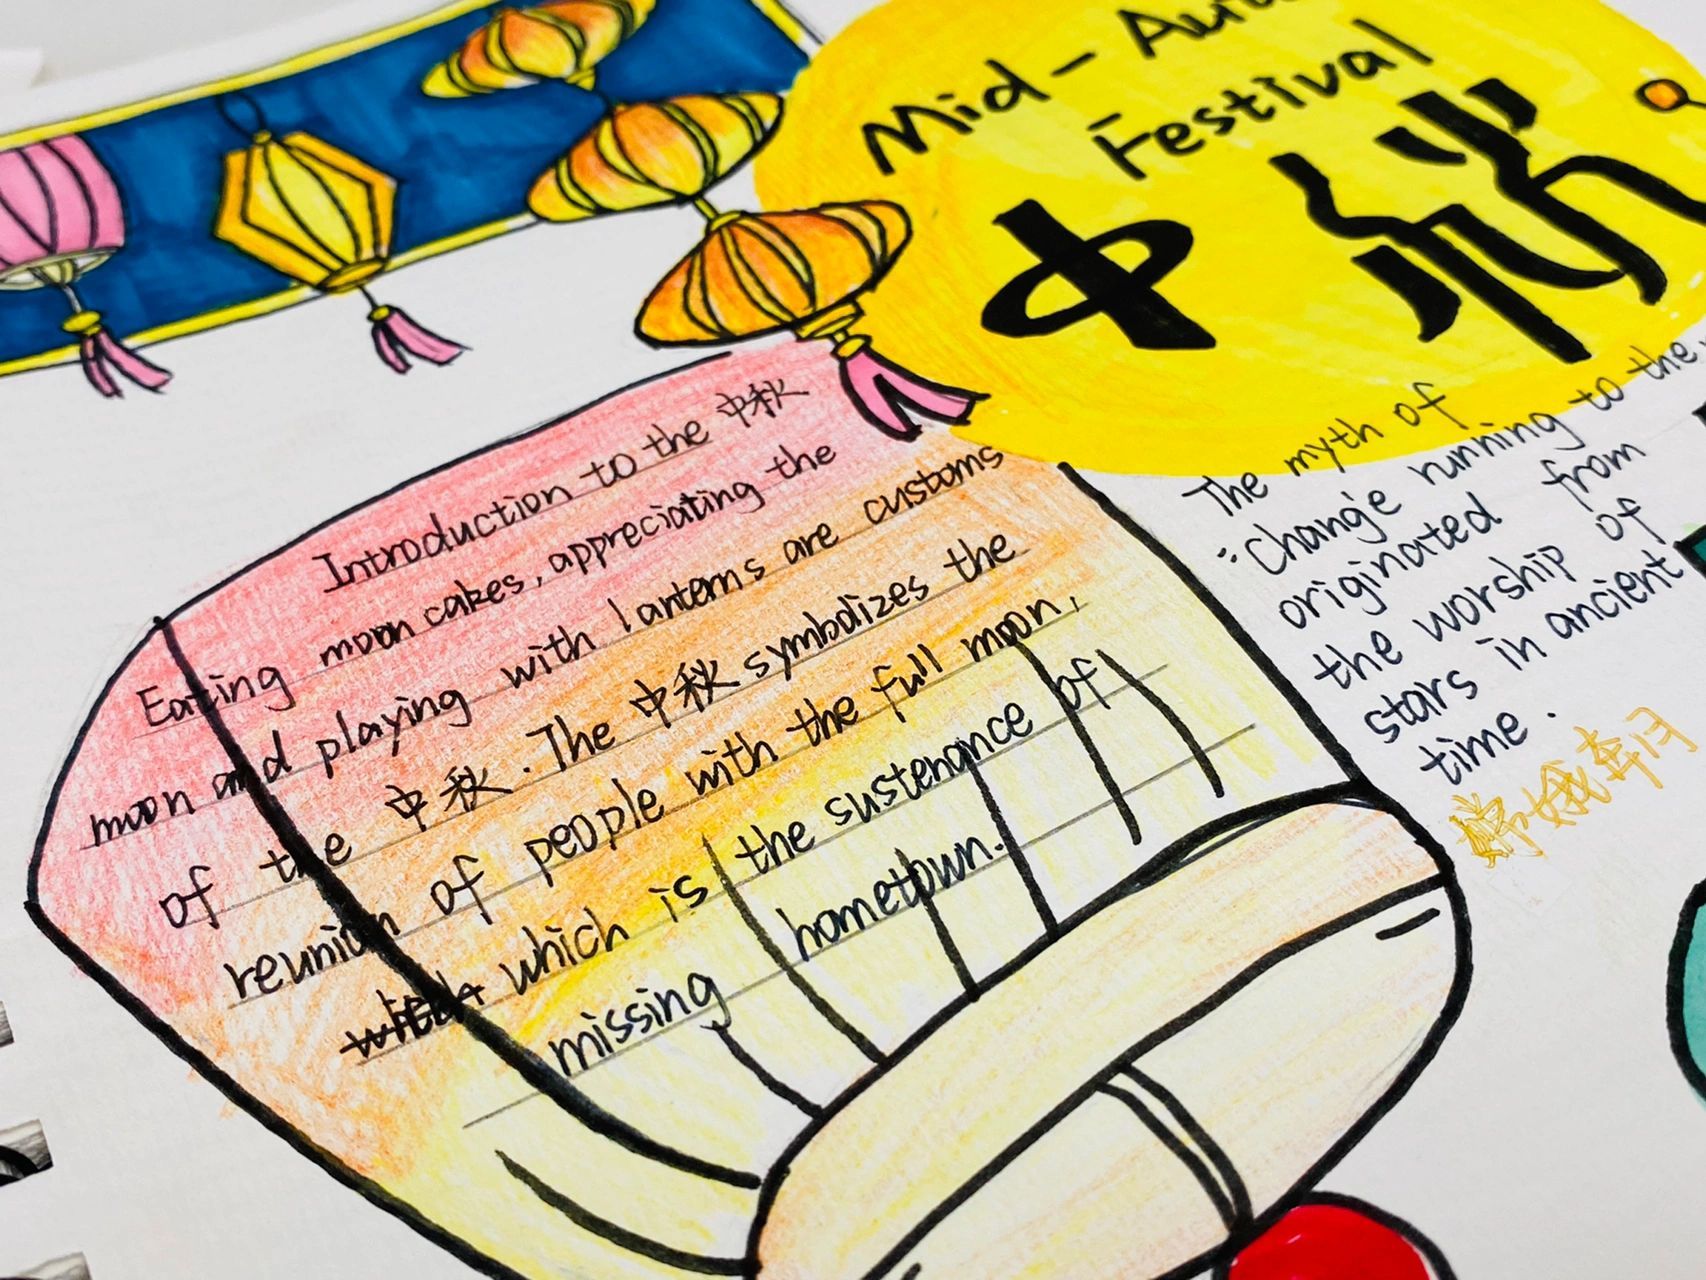 Mid-Au
Festival
中秋
Introduction to the 中秋
Eating moon cakes, appreciating the
moon and playing with lanterns are customs
of the 中秋. The 中秋 symbolizes the
reunion of people with the full moon,
which is the sustenance of
missing hometown.
The myth of
"Change running to the
originated from
the worship of
stars in ancient
time.
嫦娥奔月